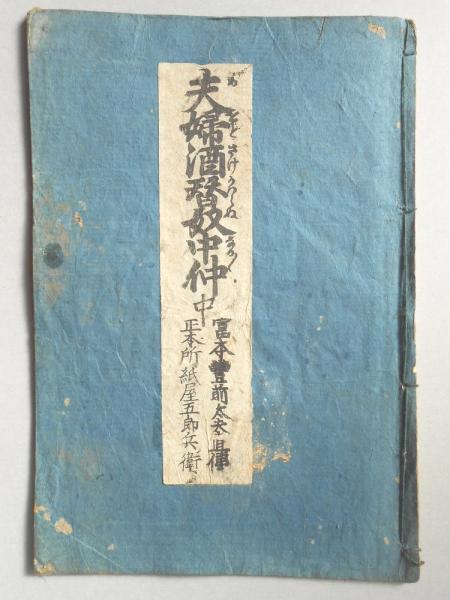 夫婦酒替奴中仲
中
富本豊前太夫直傳
正本所紙屋五郎兵衛